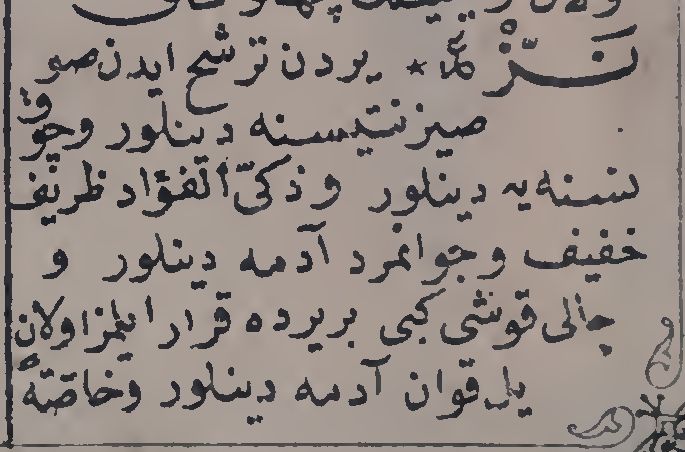 نَزّ ع ★ يردن ترشح ايدن صو
صيزنتيسنه دينلور وچوق
نسنه يه دينلور و ذكىّ الفؤاد ظريف
خفيف وجوانمرد آدمه دينلور و
چالى قوشى كبى بريرده قرار ايلمز اولان
يلدقوان آدمه دينلور وخاصّةً